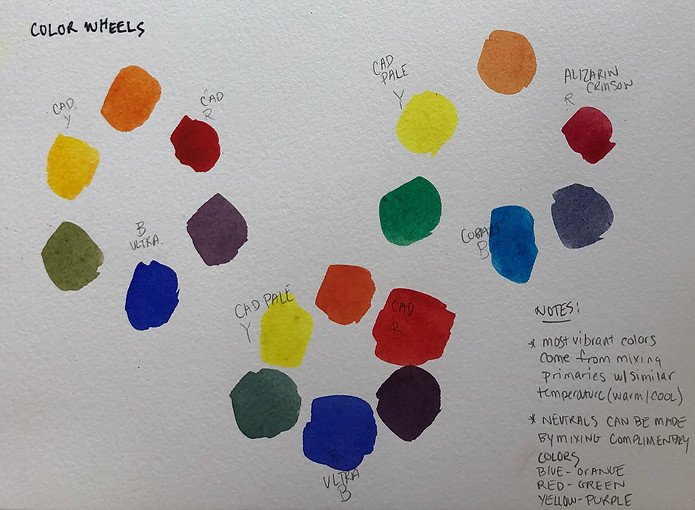 COLOR WHEELS
CAD
Y
CAD
R
B
ULTRA.
CAD
PALE
Y
ALIZARIN
CRIMSON
R
COBALT
B
CAD PALE
Y
CAD
R
ULTRA
B
NOTES:
* most vibrant colors
come from mixing
primaries w/similar
temperature (warm/cool)
* NEUTRALS CAN BE MADE
BY MIXING COMPLIMENTARY
COLORS
BLUE-ORANGE
RED-GREEN
YELLOW-PURPLE